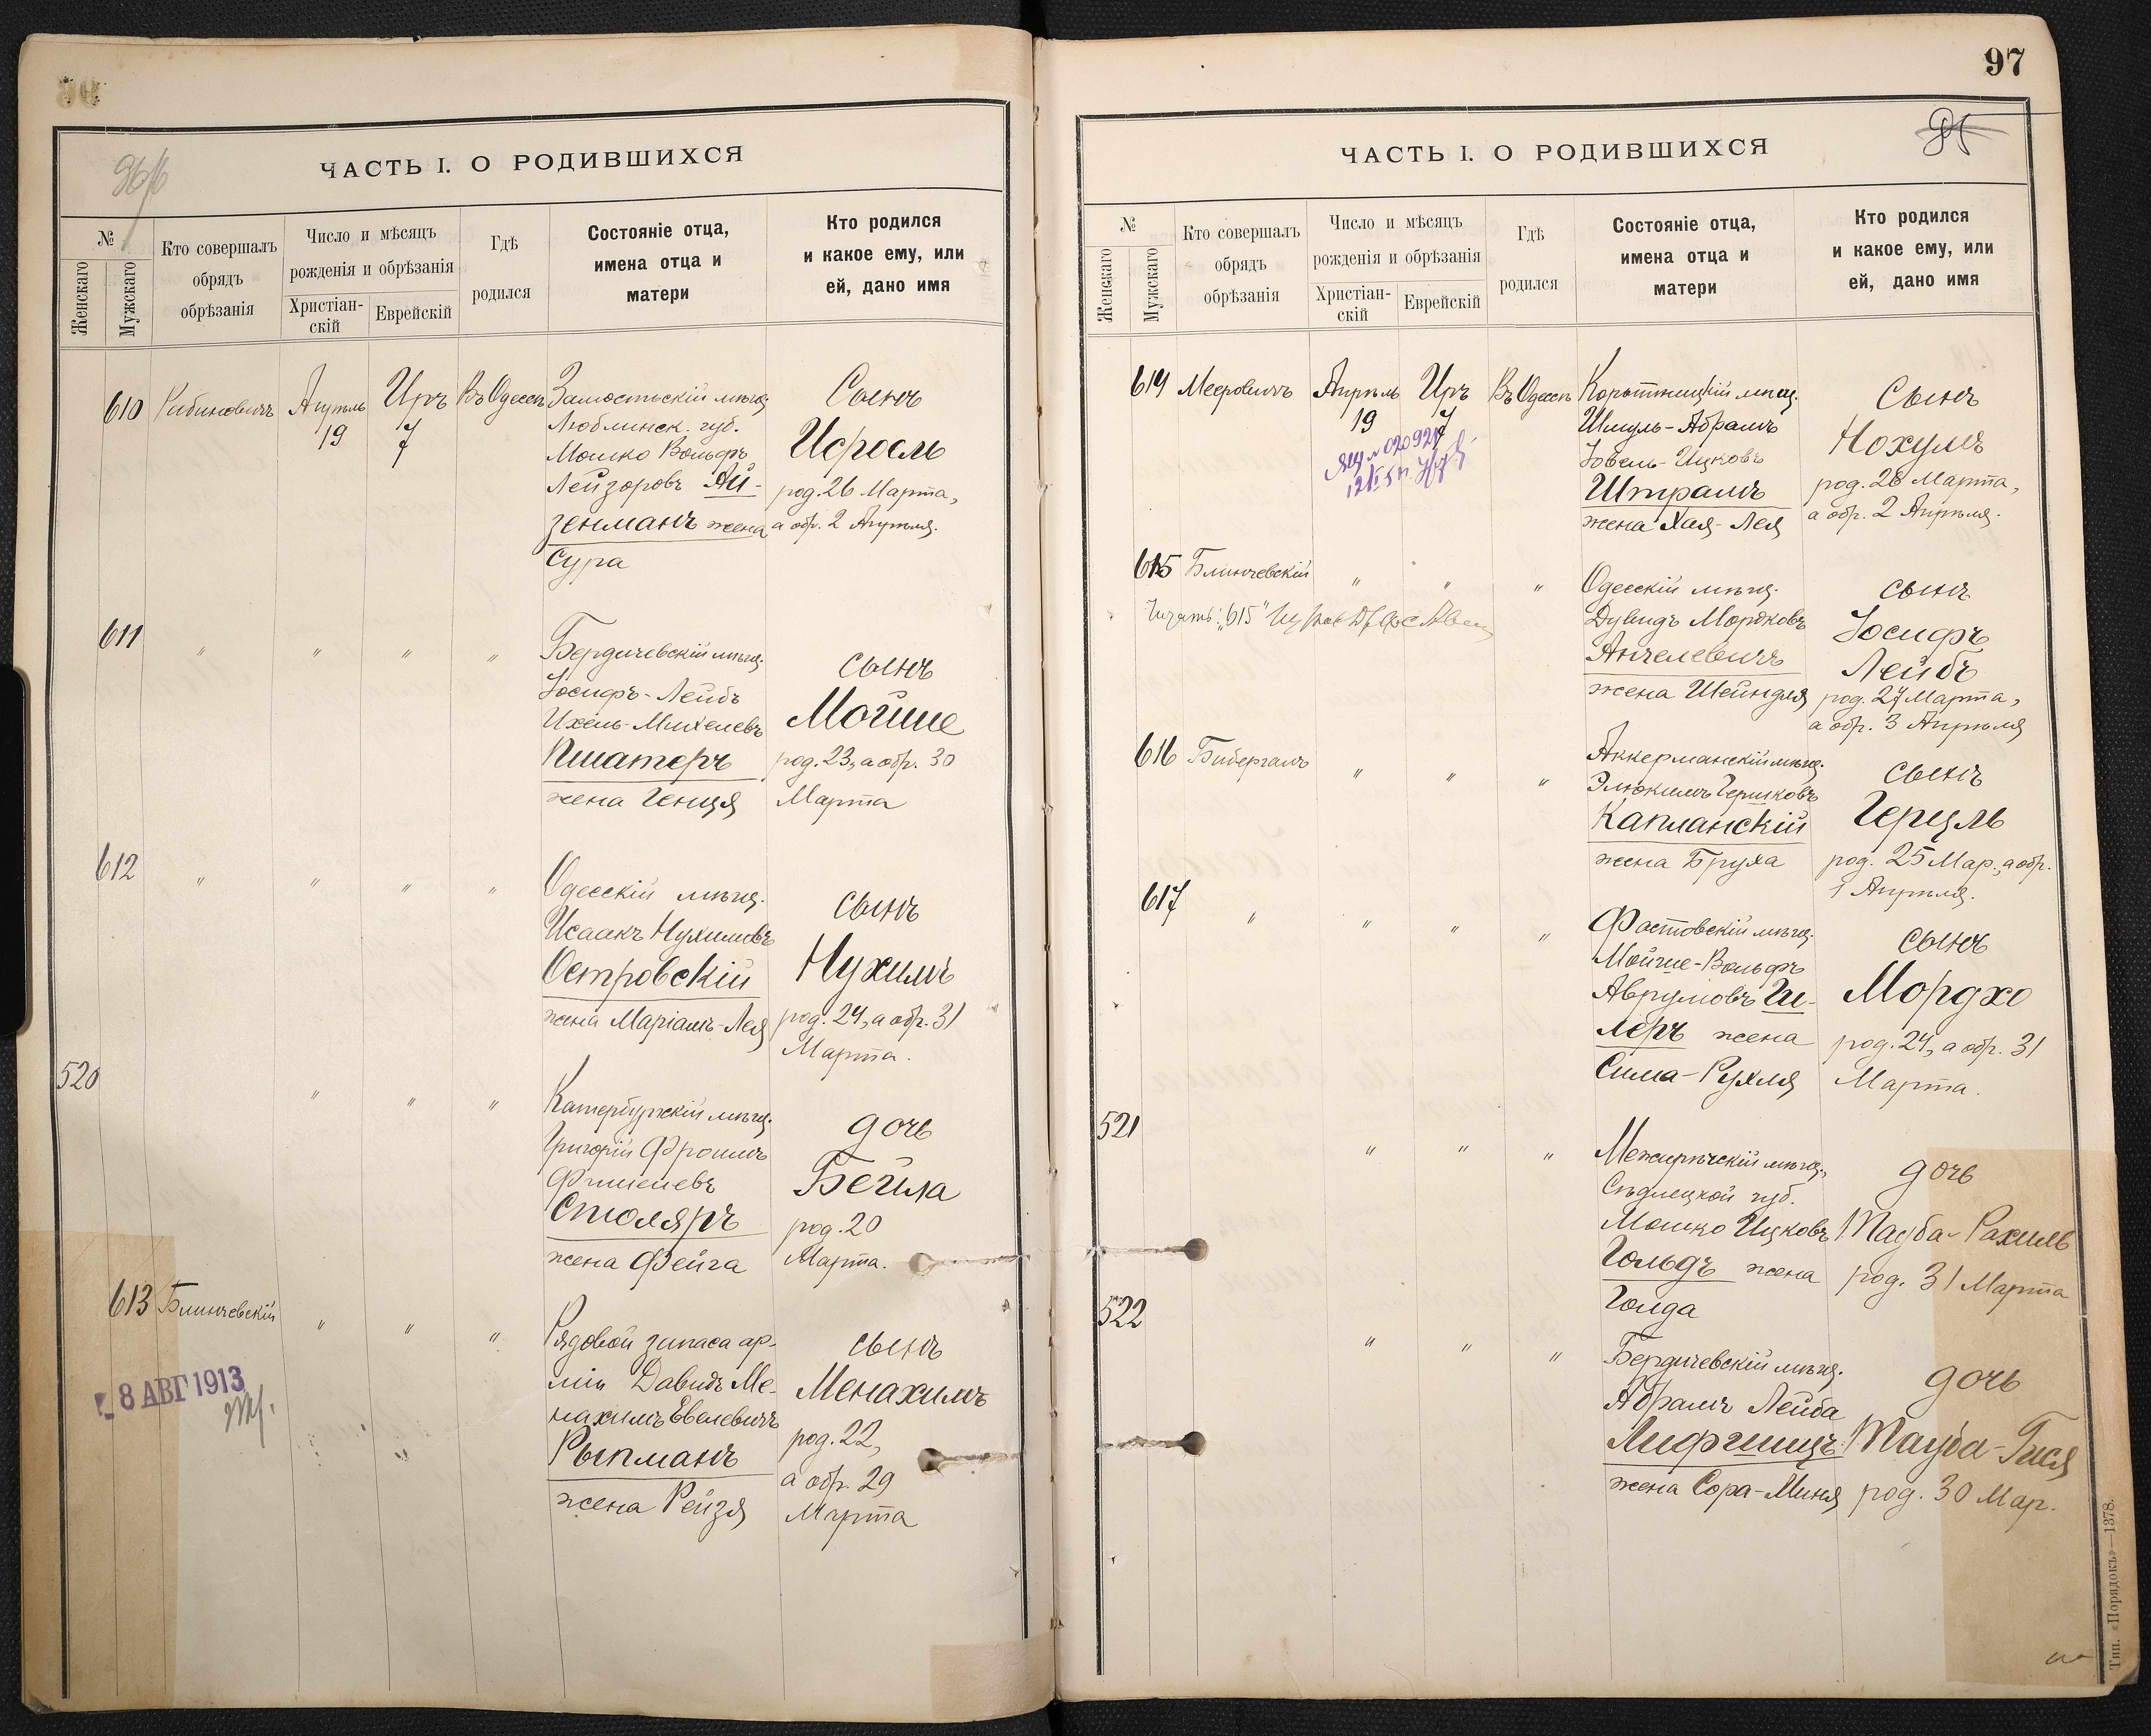 ЧАСТЬ I. О РОДИВШИХСЯ
№
Женскаго
Мужскаго
Кто совершалъ
обрядъ
обрѣзанія
Число и мѣсяцъ
рожденія и обрѣзанія
Христіан-
скій
Еврейскій
Гдѣ
родился
Состояніе отца,
имена отца и
матери
Кто родился
и какое ему, или
ей, дано имя
610 Рабиновичъ Апрѣль 19 Иръ 7 Въ Одессѣ
Замостьскій мѣщ.
Люблинск. губ.
Мошко Вольфъ
Лейзоровъ Ай-
зенманъ жена
Сура
Сынъ
Исроель
род. 26 Марта,
а обр. 2 Апрѣля.
611 " " " "
Бердичевскій мѣщ.
Іосифъ-Лейбъ
Ихель-Михелевъ
Пшатеръ
жена Генця
сынъ
Мойше
род. 23, а обр. 30
Марта
612 " " " "
Одесскій мѣщ.
Исаакъ Нухимовъ
Островскій
жена Маріамъ-Лея
сынъ
Нухимъ
род. 24, а обр. 31
Марта.
520 " " "
Катербургскій мѣщ.
Григорій Фроимъ
Фишелевъ
Столяръ
жена Фейга
дочь
Бейла
род. 20
Марта.
613 Блинчевскій " " "
8 АВГ 1913
Рядовой запаса ар-
міи Давидъ Ме-
нахимъ Евелевичъ
Рыпманъ
жена Рейзя
сынъ
Менахимъ
род. 22,
а обр. 29
Марта
97
ЧАСТЬ I. О РОДИВШИХСЯ
№
Женскаго
Мужскаго
Кто совершалъ
обрядъ
обрѣзанія
Число и мѣсяцъ
рожденія и обрѣзанія
Христіан-
скій
Еврейскій
Гдѣ
родился
Состояніе отца,
имена отца и
матери
Кто родился
и какое ему, или
ей, дано имя
614 Мееровичъ Апрѣль 19 Иръ 7 Въ Одессѣ
Шмуль-Абрамъ
Іовель-Ицковъ
Штрамъ
жена Хая-Лея
Сынъ
Нохумъ
род. 26 Марта,
а обр. 2 Апрѣля.
615 Блинчевскій " " "
Читать: "615"
Одесскій мѣщ.
Дувидъ Мордковъ
Анчелевичъ
жена Шейндля
сынъ
Іосифъ
Лейбъ
род. 27 Марта,
а обр. 3 Апрѣля
616 Бибергалъ " " "
Аккерманскій мѣщ.
Элюкимъ Гершковъ
Капланскій
жена Бруха
сынъ
Герцль
род. 25 Мар., а обр.
1 Апрѣля.
617 " " " "
Фастовскій мѣщ.
Мойше-Вольфъ
Аврумовъ Ги-
леръ жена
Сима-Рухля
сынъ
Мордхо
род. 24, а обр. 31
Марта.
521 " " "
Межирѣчскій мѣщ.,
Сѣдлецкой губ.
Мошко Ицковъ
Гольдъ жена
Голда
дочь
Тауба-Рахиль
род. 31 Марта
522 " " "
Бердичевскій мѣщ.
Абрамъ Лейба
Лифшицъ
жена Сора-Миня
дочь
Тауба-Гися
род. 30 Мар.
Тип. «Порядокъ»—1378.